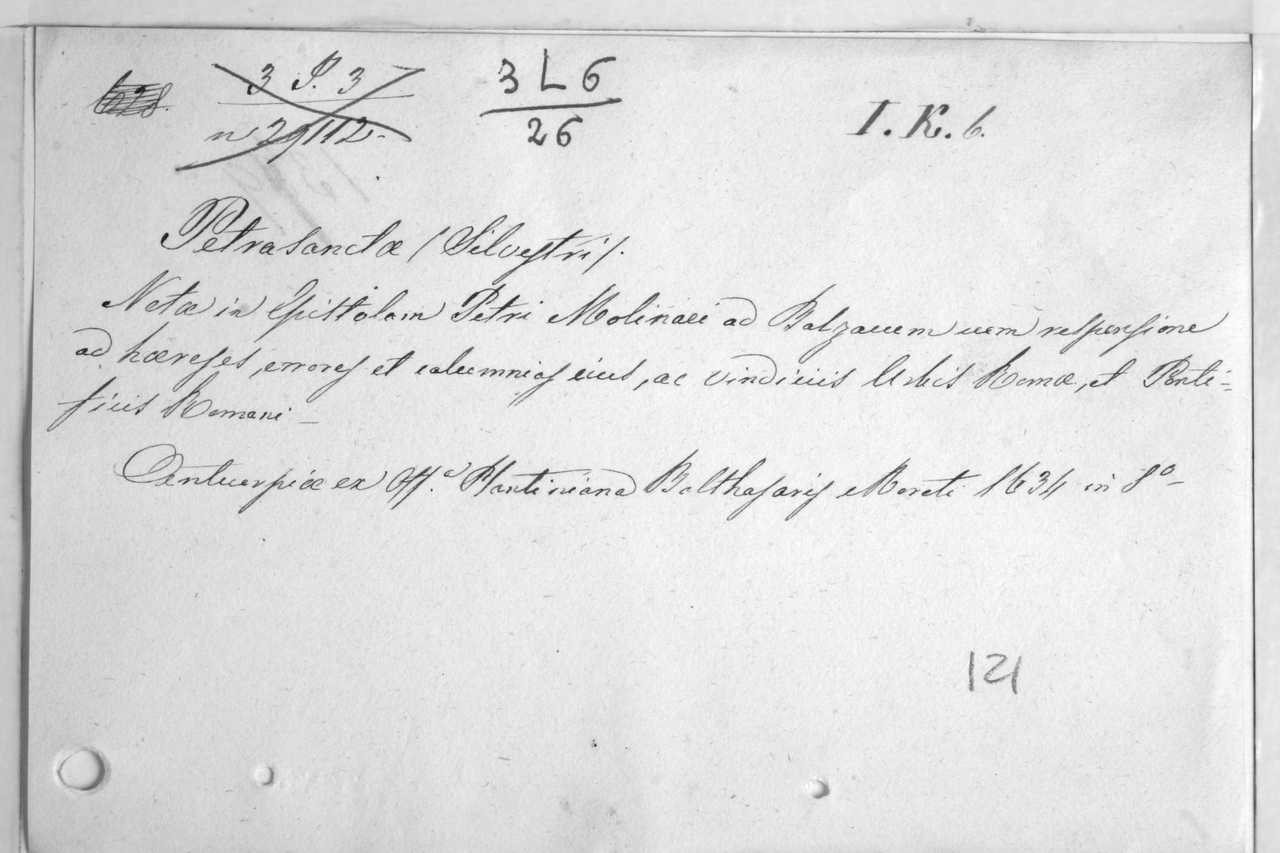 3 P. 3
n 29112-
3 L 6
26
I. K. 6.
Petrasanctæ (Silvestri).
Notæ in Epistolam Petri Molinaei ad Balzacum cum responsione
ad hæreses, errores et calumnias eius, ac vindiciis Urbis Romæ, et Ponti-
ficis Romani -
Antuerpiæ ex Off.ª Plantiniana Balthasaris Moreti 1634 in 8º -
121